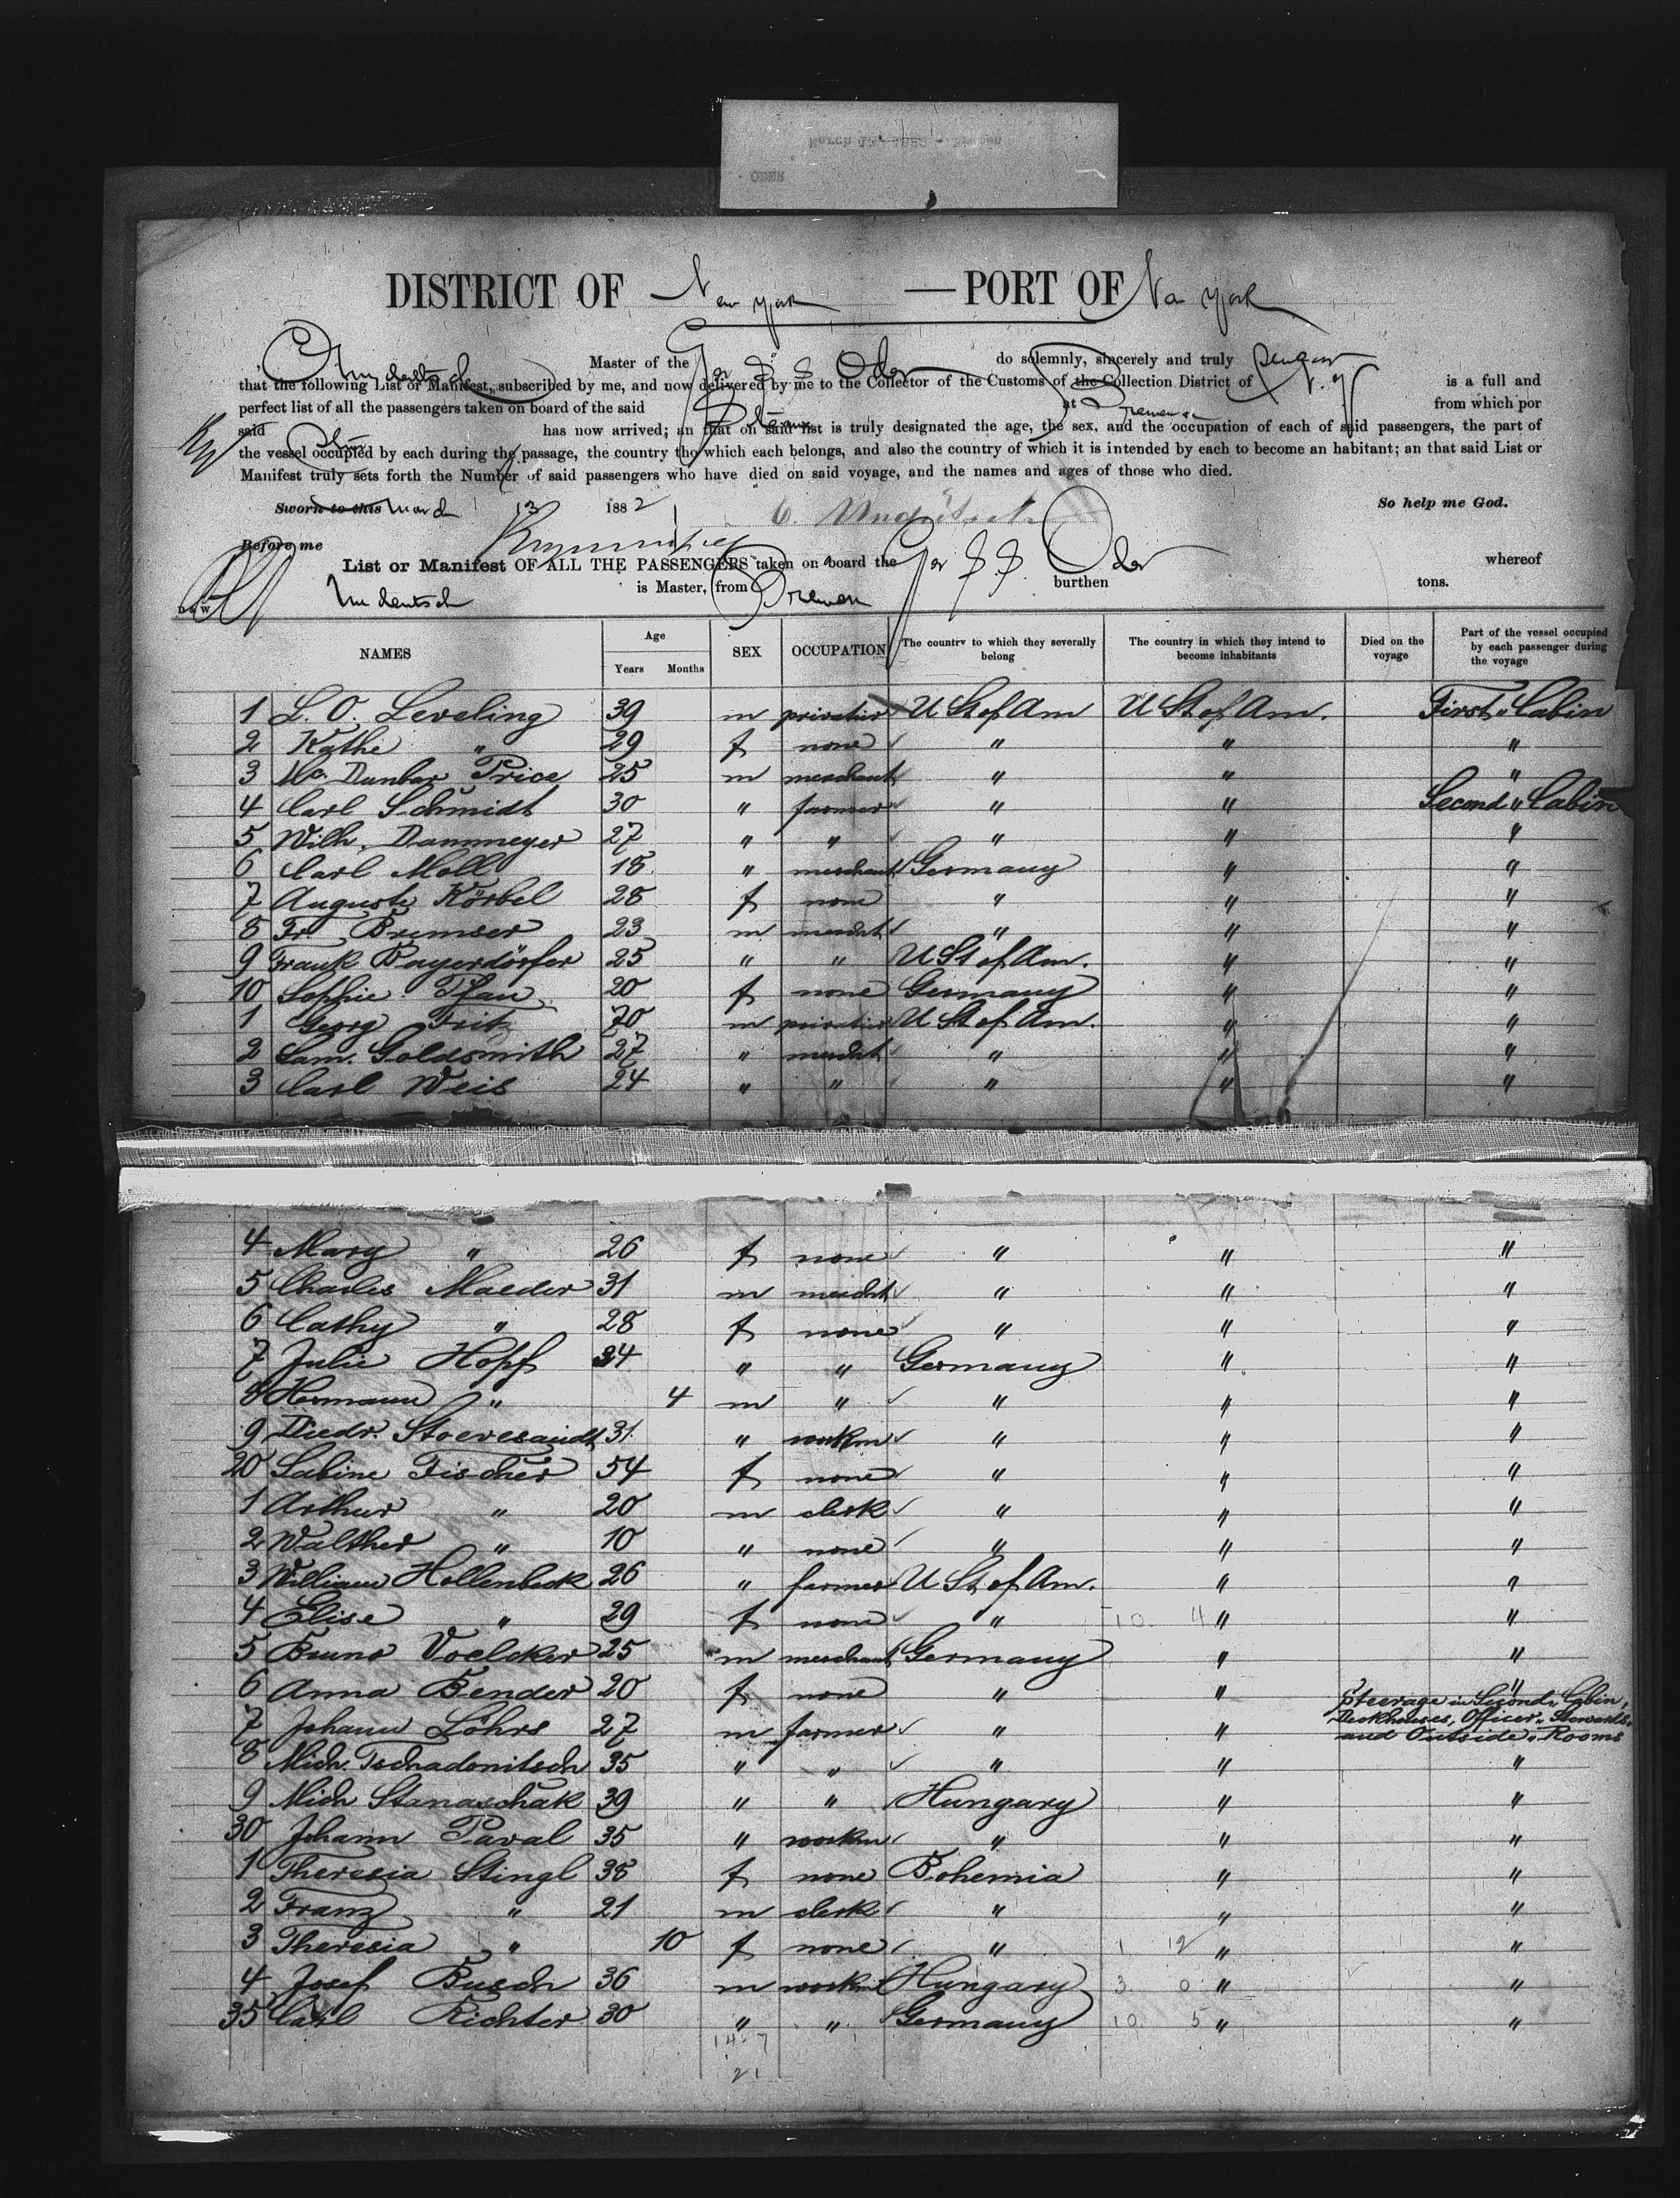 March 13, 1882 - Bremen
ODER
DISTRICT OF New York — PORT OF New York
C Undeutsch Master of the Ger S S Oder do solemnly, sincerely and truly swear
that the following List or Manifest, subscribed by me, and now delivered by me to the Collector of the Customs of the Collection District of N.Y. is a full and
perfect list of all the passengers taken on board of the said Steamer at Bremen from which por
said Ship has now arrived; an that on said list is truly designated the age, the sex, and the occupation of each of said passengers, the part of
the vessel occupied by each during the passage, the country tho which each belongs, and also the country of which it is intended by each to become an habitant; an that said List or
Manifest truly sets forth the Number of said passengers who have died on said voyage, and the names and ages of those who died.
Sworn to this March 13 1882 C. Undeutsch So help me God.
Before me
List or Manifest OF ALL THE PASSENGERS taken on board the Ger S.S. Oder whereof
Undeutsch is Master, from Bremen burthen tons.
NAMES Age Years Months SEX OCCUPATION The country to which they severally belong The country in which they intend to become inhabitants Died on the voyage Part of the vessel occupied by each passenger during the voyage
1 L. O. Leveling 39 m privatier U St of Am U St of Am. First Cabin
2 Käthe " 29 f none " " "
3 Mc. Dunbar Price 25 m merchant " " "
4 Carl Schmidt 30 " farmer " " Second Cabin
5 Wilh. Dammeyer 27 " " " " "
6 Carl Moll 18 " merchant Germany " "
7 Auguste Körbel 28 f none " " "
8 Fr. Bremser 23 m mercht " " "
9 Frank Bayerdörfer 25 " " U St of Am. " "
10 Sophie Pfau 20 f none Germany " "
1 Georg Fritz 70 m privatier U St of Am. " "
2 Sam. Goldsmith 27 " mercht " " "
3 Carl Weis 24 " " " " "
4 Mary " 26 f none " " "
5 Charles Maeder 31 m mercht " " "
6 Cathy " 28 f none " " "
7 Julie Hopf 34 " " Germany " "
8 Hermann " 4 m " " " "
9 Diedr. Stoevesandt 31 " workm " " "
20 Sabine Fischer 54 f none " " "
1 Arthur " 20 m clerk " " "
2 Walther " 10 " none " " "
3 William Hollenbeck 26 " farmer U St of Am. " "
4 Elise " 29 f none " 10 4 " "
5 Bruno Voelcker 25 m merchant Germany " "
6 Anna Bender 20 f none " " "
Steerage in Second Cabin,
Deckhouses, Officer, Stewards,
and Outside Rooms
7 Johann Löhrs 27 m farmer " "
8 Mich. Tschadonitsch 35 " " " " "
9 Mich Stanaschak 39 " " Hungary " "
30 Johann Paval 35 " workm " " "
1 Theresia Stingl 38 f none Bohemia " "
2 Franz " 21 m clerk " " "
3 Theresia " 10 f none " 1 12 " "
4 Josef Busch 36 m workm Hungary 3 0 " "
35 Carl Richter 30 " " Germany 10 5 " "
14 7
21